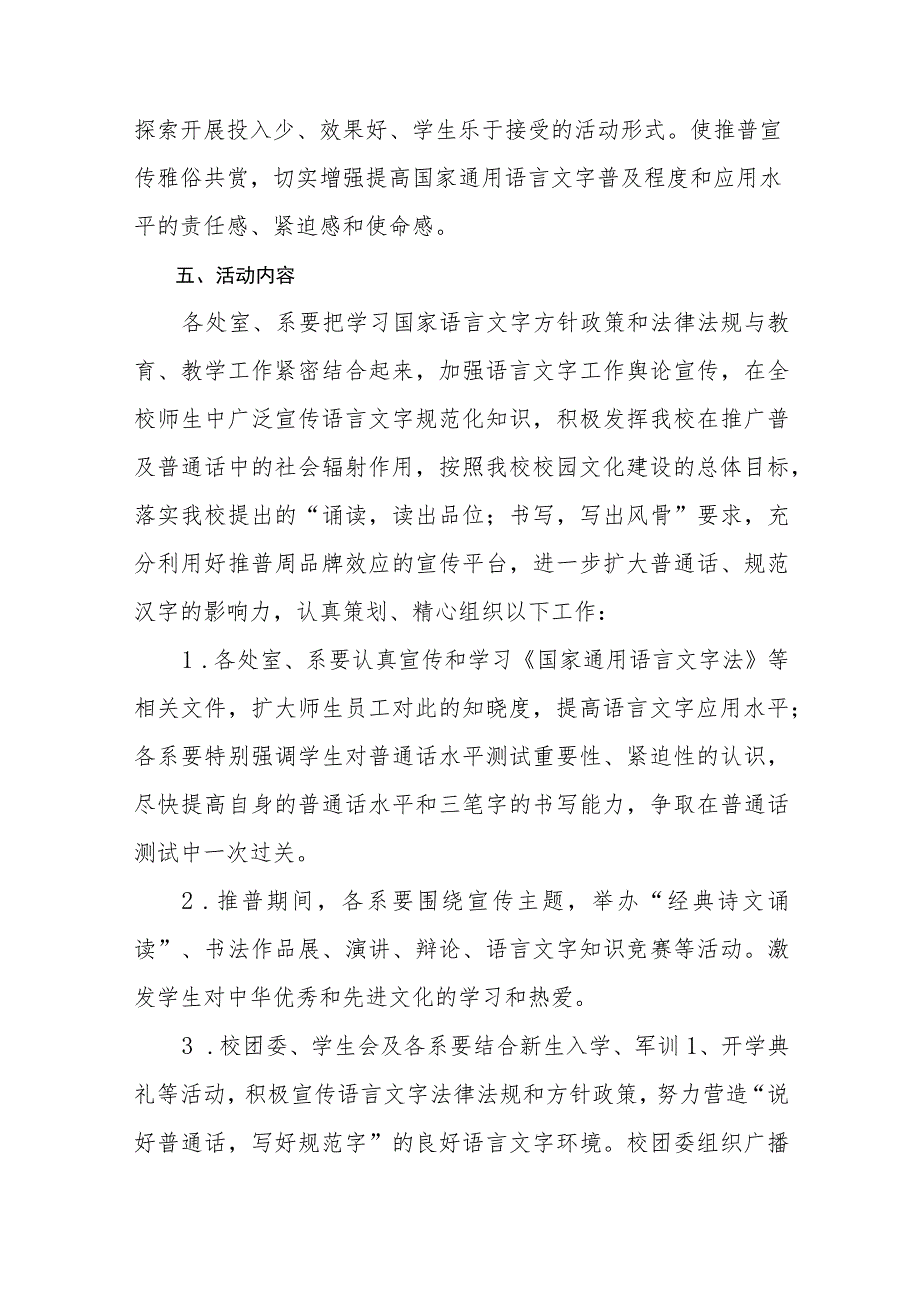 探索开展投入少、效果好、学生乐于接受的活动形式。使推普宣
传雅俗共赏，切实增强提高国家通用语言文字普及程度和应用水
平的责任感、紧迫感和使命感。
五、活动内容
各处室、系要把学习国家语言文字方针政策和法律法规与教
育、教学工作紧密结合起来，加强语言文字工作舆论宣传，在全
校师生中广泛宣传语言文字规范化知识，积极发挥我校在推广普
及普通话中的社会辐射作用，按照我校校园文化建设的总体目标，
落实我校提出的“诵读，读出品位；书写，写出风骨”要求，充
分利用好推普周品牌效应的宣传平台，进一步扩大普通话、规范
汉字的影响力，认真策划、精心组织以下工作：
1.各处室、系要认真宣传和学习《国家通用语言文字法》等
相关文件，扩大师生员工对此的知晓度，提高语言文字应用水平；
各系要特别强调学生对普通话水平测试重要性、紧迫性的认识，
尽快提高自身的普通话水平和三笔字的书写能力，争取在普通话
测试中一次过关。
2.推普期间，各系要围绕宣传主题，举办“经典诗文诵
读”、书法作品展、演讲、辩论、语言文字知识竞赛等活动。激
发学生对中华优秀和先进文化的学习和热爱。
3.校团委、学生会及各系要结合新生入学、军训1、开学典
礼等活动，积极宣传语言文字法律法规和方针政策，努力营造“说
好普通话，写好规范字”的良好语言文字环境。校团委组织广播